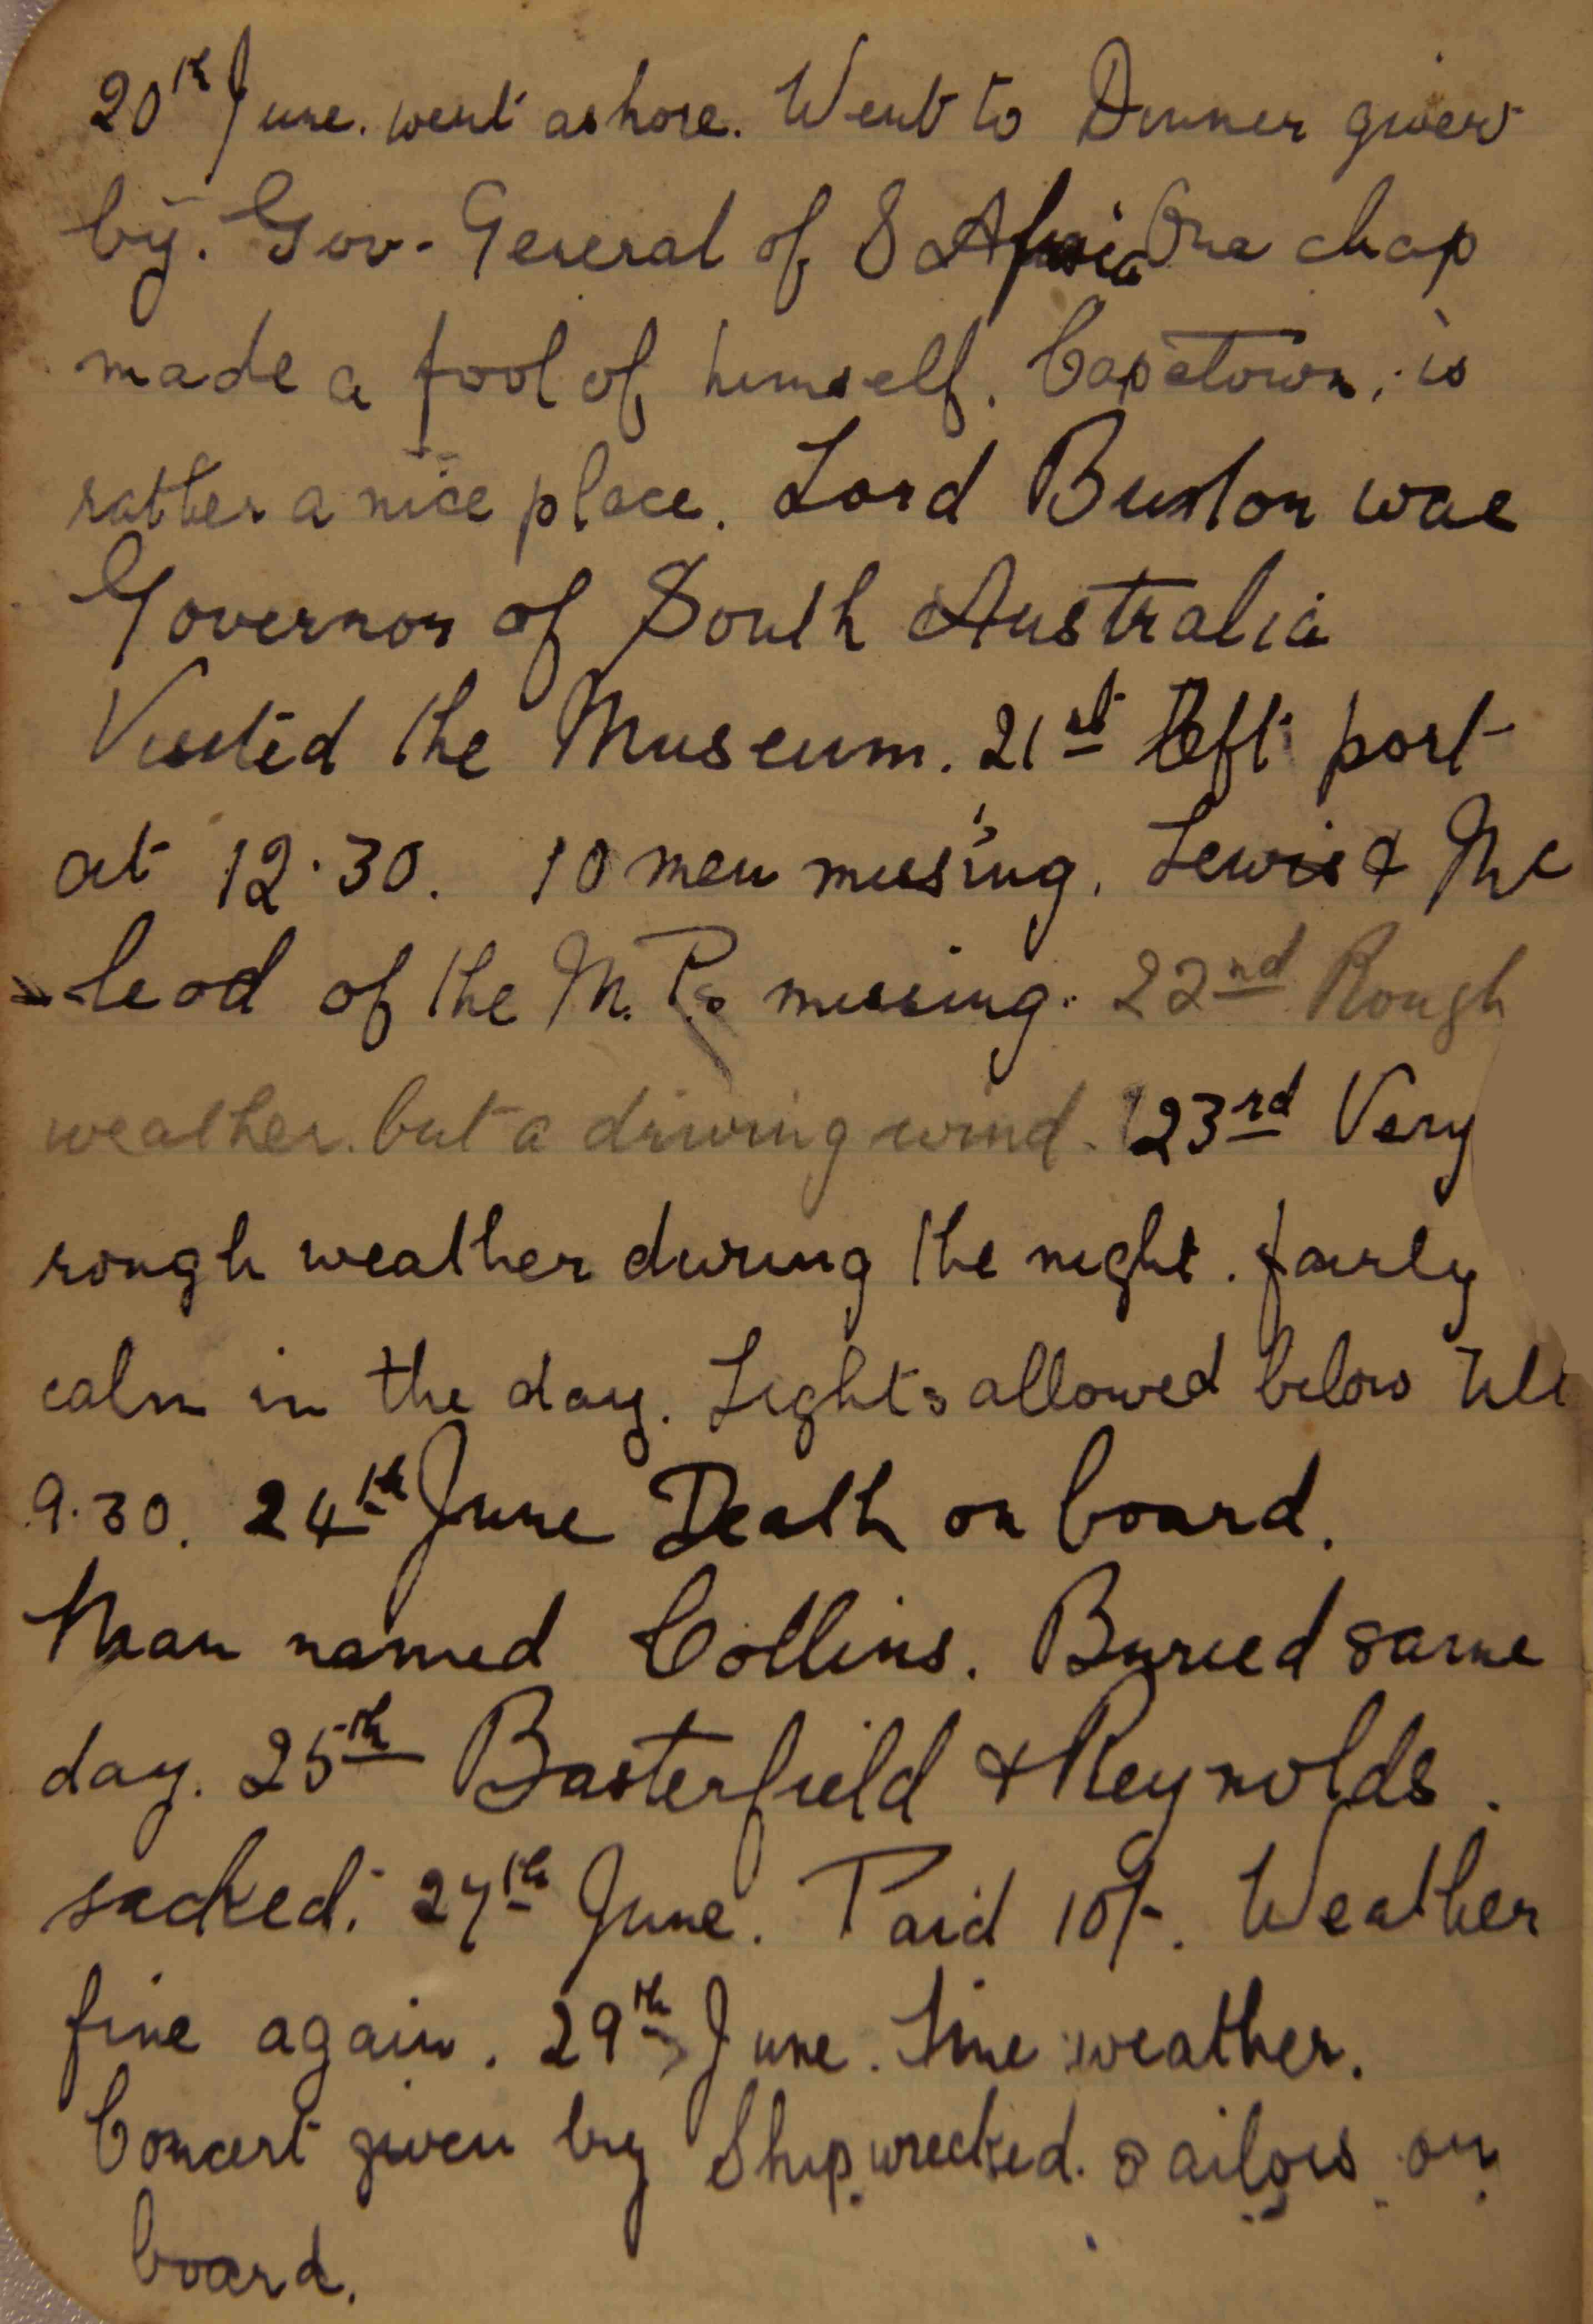 20th June. went ashore. Went to Dinner given
by. Gov-General of S Africa One chap
made a fool of himself. Capetown, is
rather a nice place. Lord Buxton was
Governor of South Australia
Visited the Museum. 21st left port
at 12.30. 10 men missing. Lewis & Mc
-leod of the M.Ps missing. 22nd Rough
weather. but a driving wind. 23rd Very
rough weather during the night. fairly
calm in the day. Lights allowed below till
9.30. 24th June Death on board.
Man named Collins. Buried same
day. 25th Basterfield & Reynolds.
sacked. 27th June. Paid 10/-. Weather
fine again. 29th June. Fine weather.
Concert given by Shipwrecked. sailors on
board.